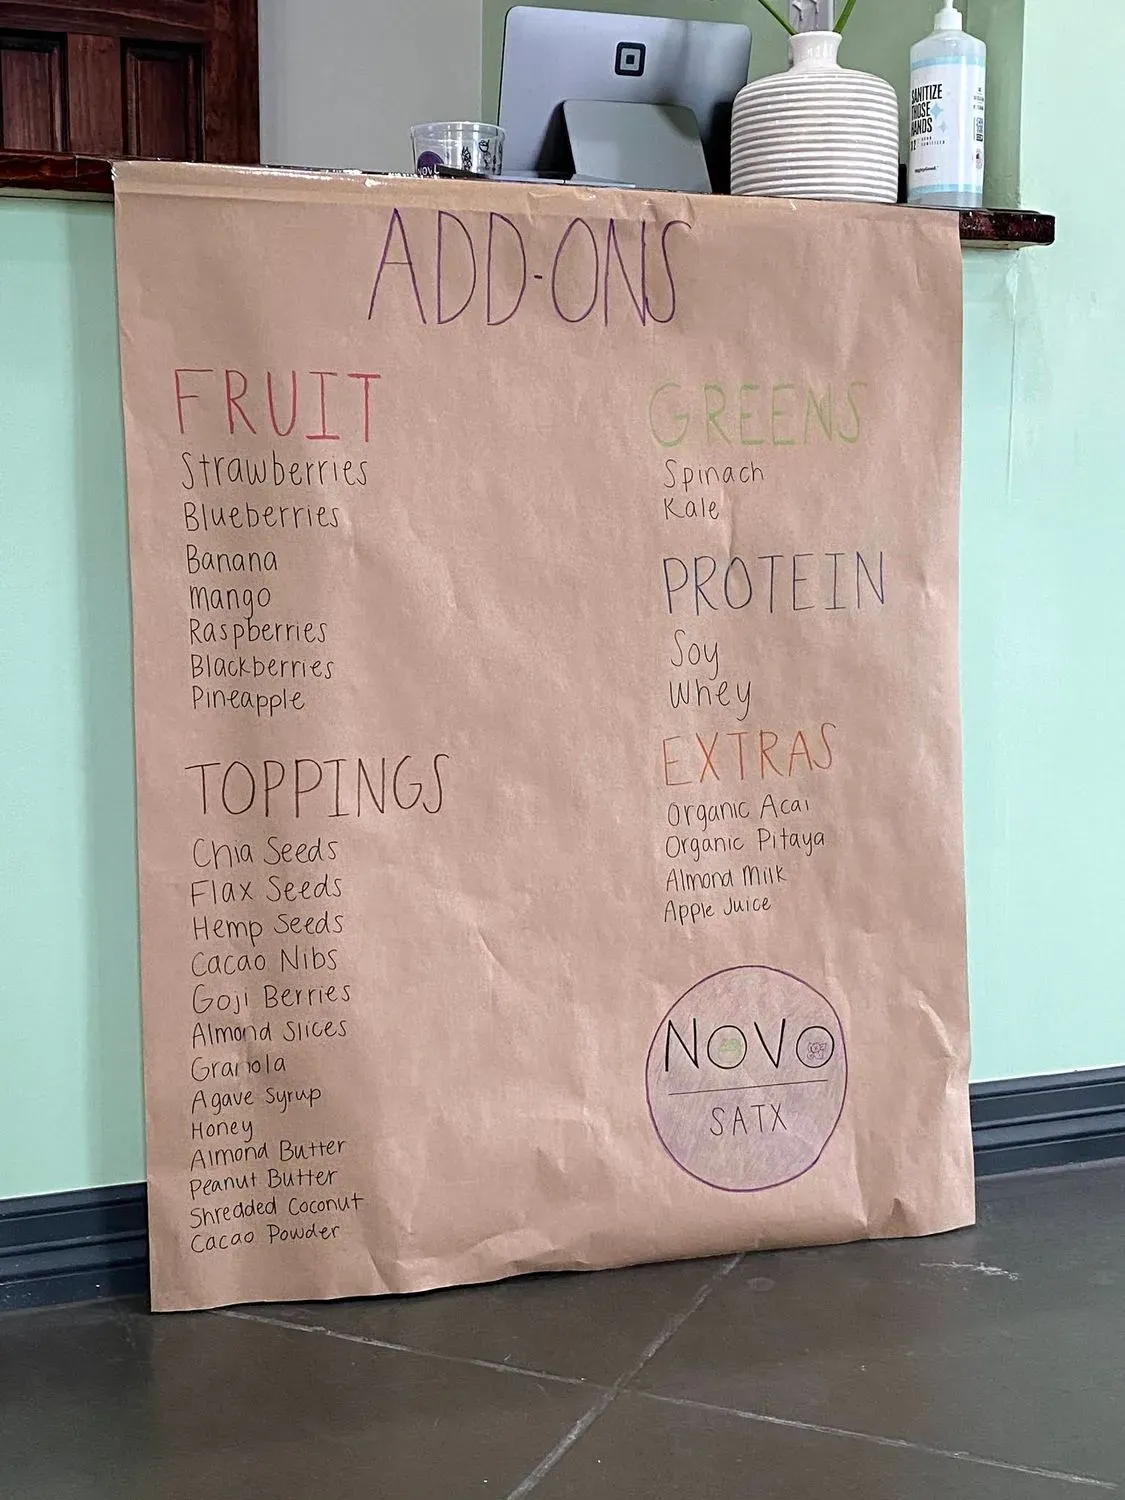 SANITIZE
THOSE
HANDS
NOVO
ADD-ONS
FRUIT
Strawberries
Blueberries
Banana
mango
Raspberries
Blackberries
Pineapple
TOPPINGS
Chia Seeds
Flax Seeds
Hemp Seeds
Cacao Nibs
Goji Berries
Almond Slices
Granola
Agave Syrup
Honey
Almond Butter
Peanut Butter
Shredded Coconut
Cacao Powder
GREENS
Spinach
Kale
PROTEIN
Soy
Whey
EXTRAS
Organic Acai
Organic Pitaya
Almond Milk
Apple Juice
NOVO
SATX